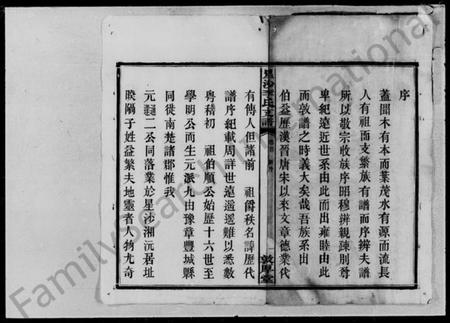 序
蓋聞木有本而葉茂水有源而流長
人有祖而支繁族有譜而序辨夫譜
所以敬宗收族序昭穆辨親疎別尊
卑紀遠近世系由此而出雍睦由此
而敦譜之時義大矣哉吾族系出
伯益歷漢晉唐宋以來文章德業代
星沙李氏支譜
敦厚堂
有傳人但滿前 祖爵秩名諱歷代
譜序紀載周詳世遠遥遥難以悉數
粵稽初 祖順公始歷十六世至
學明公而生元派九由豫章豐城縣
同徙南楚諸郡惟我
元 二公同落業於星沙湘沅居址
暌隔子姓益繁夫地靈者人物尤奇
FamilySearch International